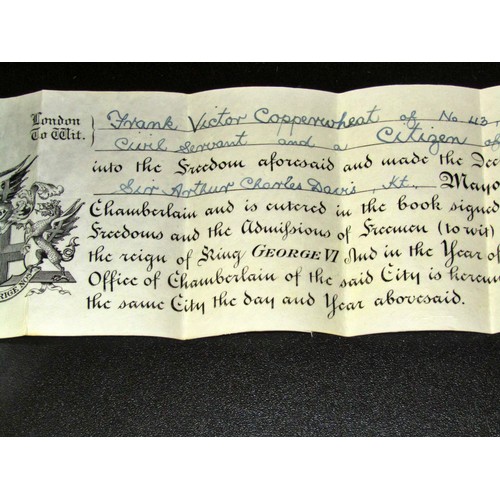 London
To Wit.
Frank Victor Copperwheat of No 43,
Civil Servant and a Citizen of
into the Freedom aforesaid and made the Dec
Sir Arthur Charles Davis, Kt., Mayo
Chamberlain and is entered in the book signed
Freedoms and the Admissions of Freemen (to wit)
the reign of King GEORGE VI And in the Year of
Office of Chamberlain of the said City is hereun
the same City the day and Year abovesaid.